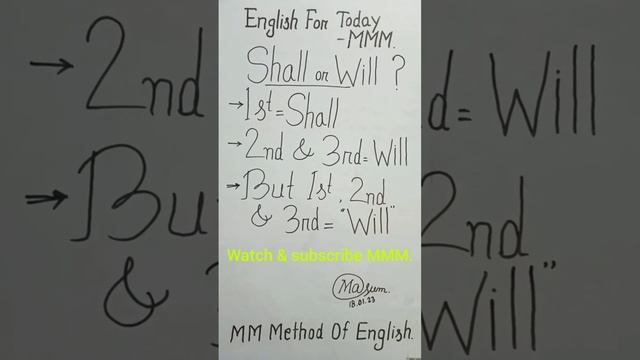 English For Today
-MMM.
Shall or Will ?
→1st = Shall
→2nd & 3rd = Will
→But 1st, 2nd
& 3rd = "Will"
Watch & subscribe MMM.
Masum.
18.01.23
MM Method Of English.
→2nd
d = Will
→But
2nd
&
Will"